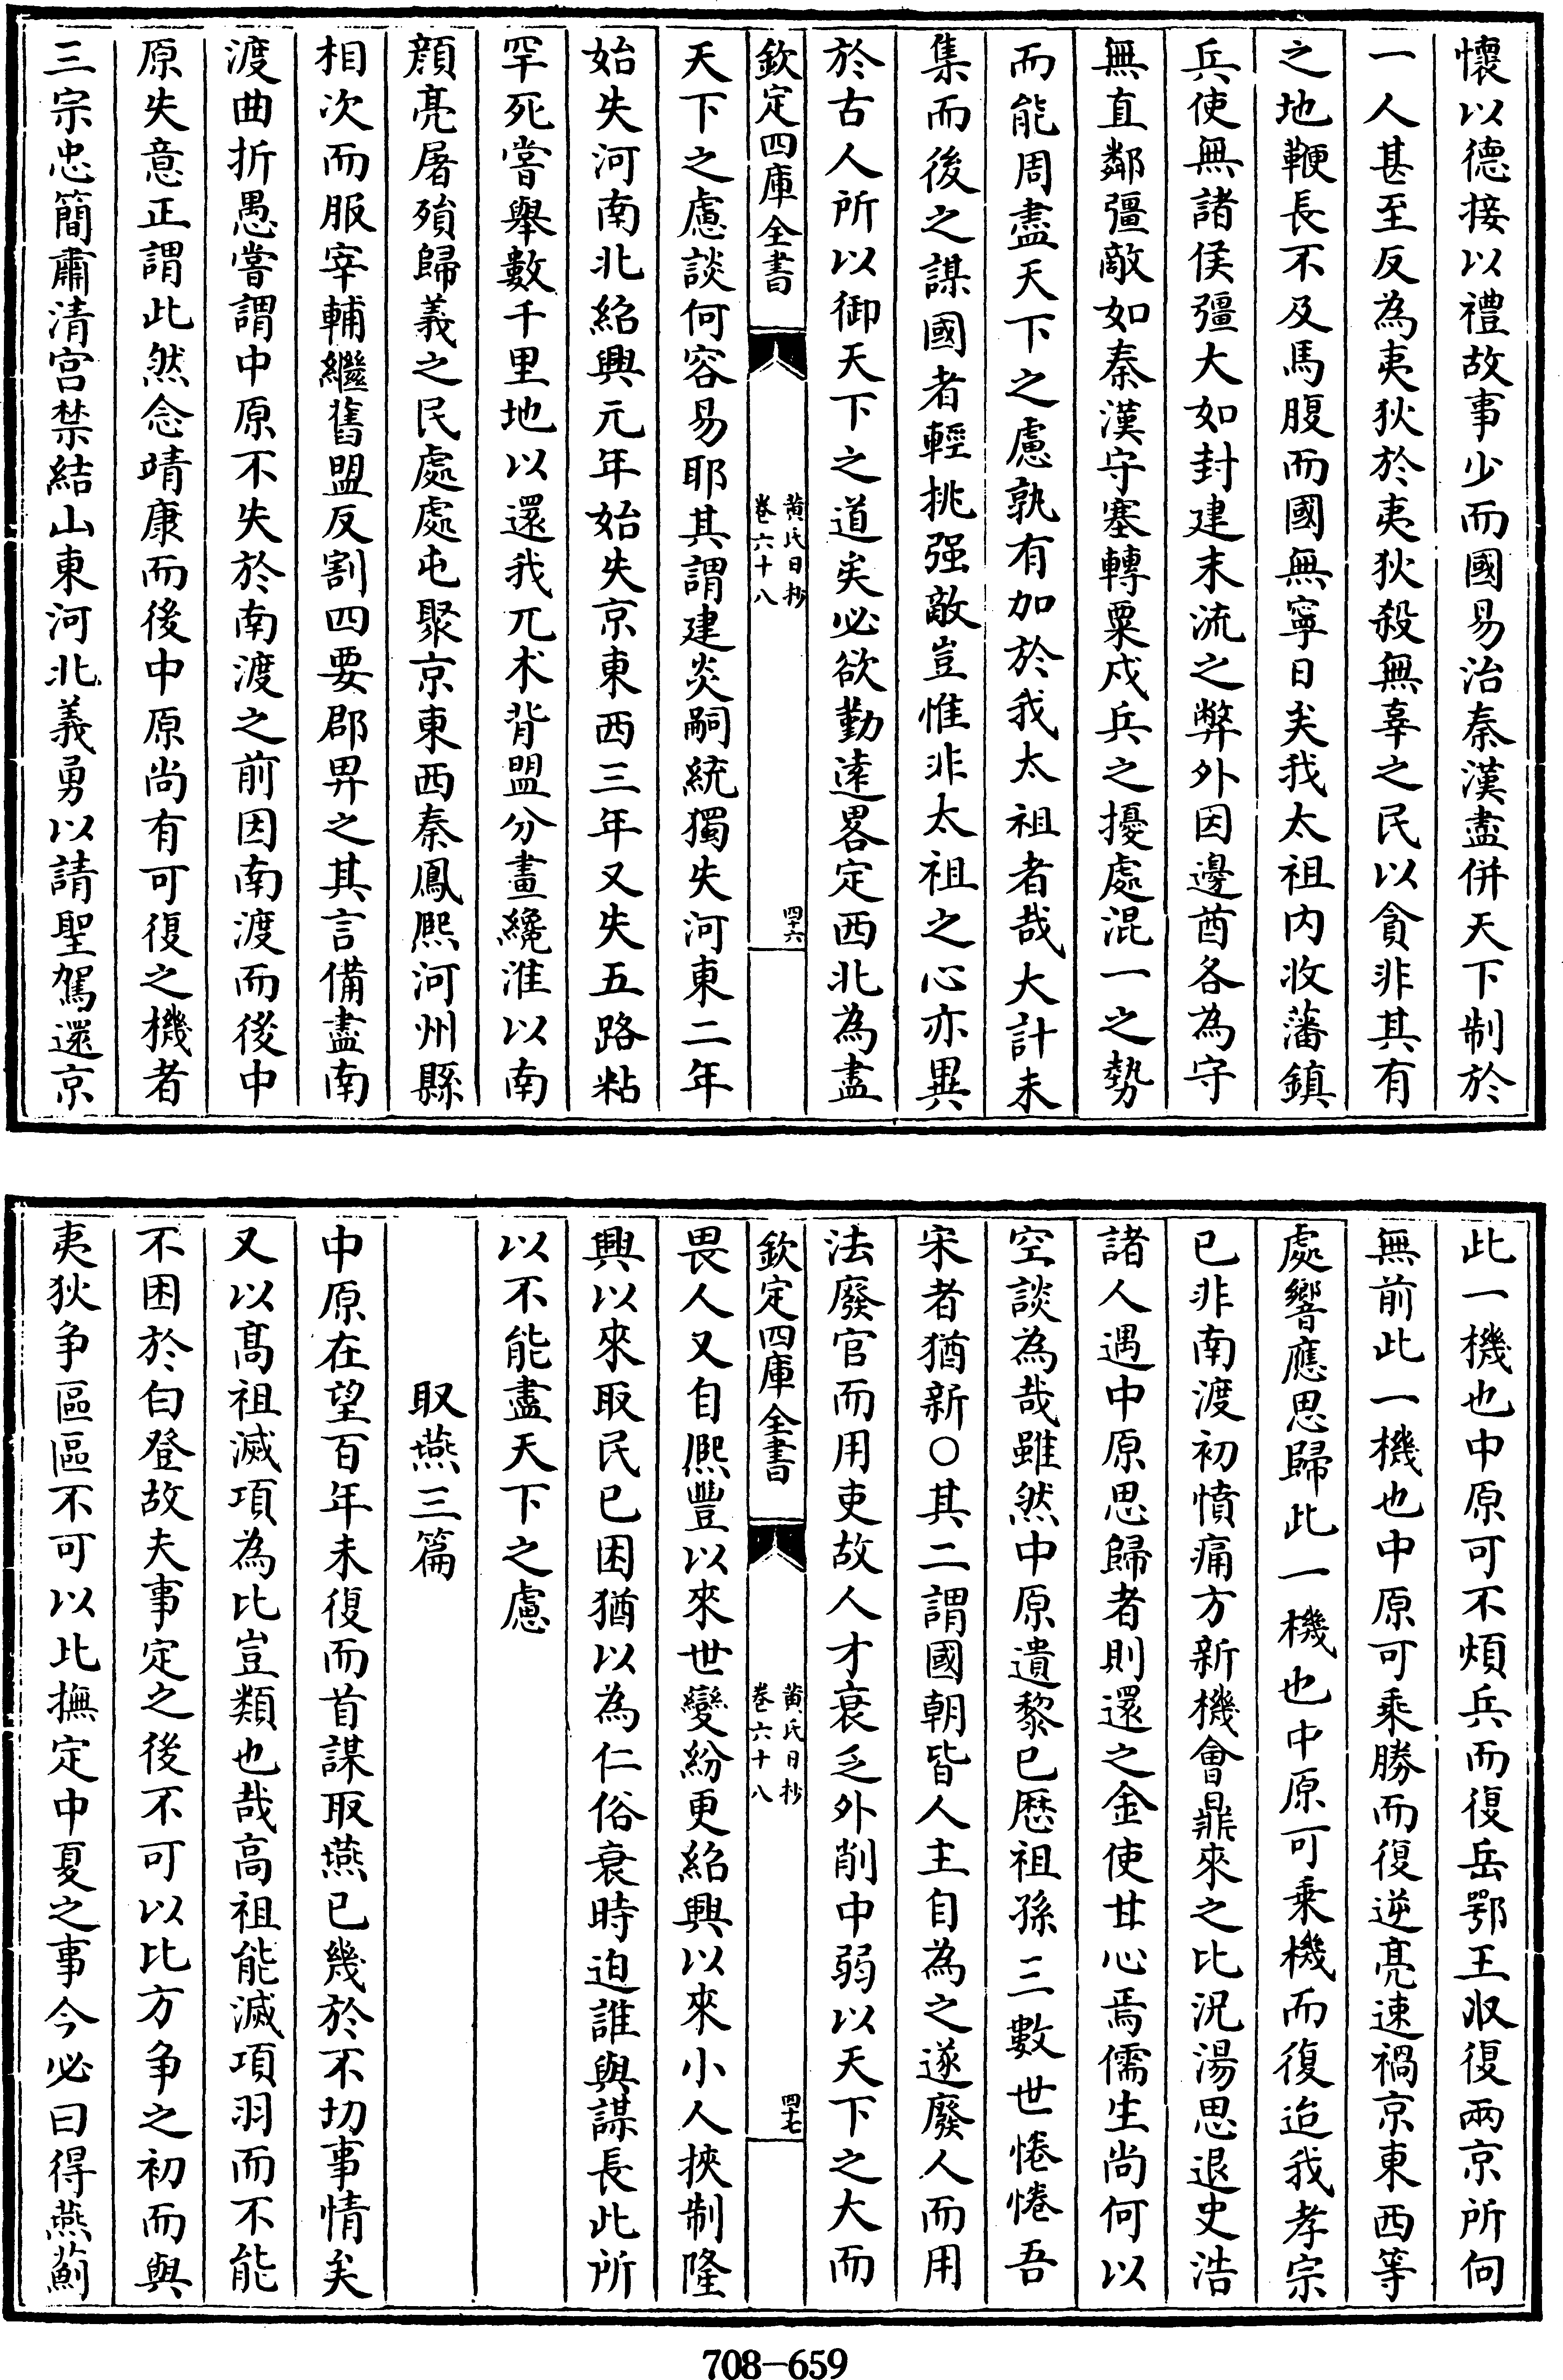 懐以德接以禮故事少而國易治秦漢盡併天下制於
一人甚至反為夷狄於夷狄殺無辜之民以貪非其有
之地鞭長不及馬腹而國無寧日矣我太祖内收藩鎮
兵使無諸侯彊大如封建末流之弊外因邊酋各為守
無直鄰彊敵如秦漢守塞轉粟戍兵之擾處混一之勢
而能周盡天下之慮孰有加於我太祖者哉大計未
集而後之謀國者輕挑强敵豈惟非太祖之心亦異
於古人所以御天下之道矣必欲勤逺畧定西北為盡
欽定四庫全書
黄氏日抄
卷六十八
四十六
天下之慮談何容易耶其謂建炎嗣統獨失河東二年
始失河南北紹興元年始失京東西三年又失五路粘
罕死嘗舉數千里地以還我兀术背盟分畫纔淮以南
顔亮屠殞歸義之民處處屯聚京東西秦鳳熈河州縣
相次而服宰輔繼舊盟反割四要郡畀之其言備盡南
渡曲折愚嘗謂中原不失於南渡之前因南渡而後中
原失意正謂此然念靖康而後中原尚有可復之機者
三宗忠簡肅清宫禁結山東河北義勇以請聖駕還京
此一機也中原可不煩兵而復岳鄂王收復兩京所向
無前此一機也中原可乘勝而復逆亮速禍京東西等
處響應思歸此一機也中原可乗機而復迨我孝宗
已非南渡初憤痛方新機會鼎來之比況湯思退史浩
諸人遇中原思歸者則還之金使甘心焉儒生尚何以
空談為哉雖然中原遺黎已歴祖孫三數世惓惓吾
宋者猶新○其二謂國朝皆人主自為之遂廢人而用
法廢官而用吏故人才衰乏外削中弱以天下之大而
欽定四庫全書
黄氏日抄
卷六十八
四十七
畏人又自熈豐以來世變紛更紹興以來小人挾制隆
興以來取民已困猶以為仁俗衰時迫誰與謀長此所
以不能盡天下之慮
取燕三篇
中原在望百年未復而首謀取燕已幾於不切事情矣
又以髙祖滅項為比豈類也哉高祖能滅項羽而不能
不困於白登故夫事定之後不可以比方争之初而與
夷狄争區區不可以比撫定中夏之事今必曰得燕薊
708-659